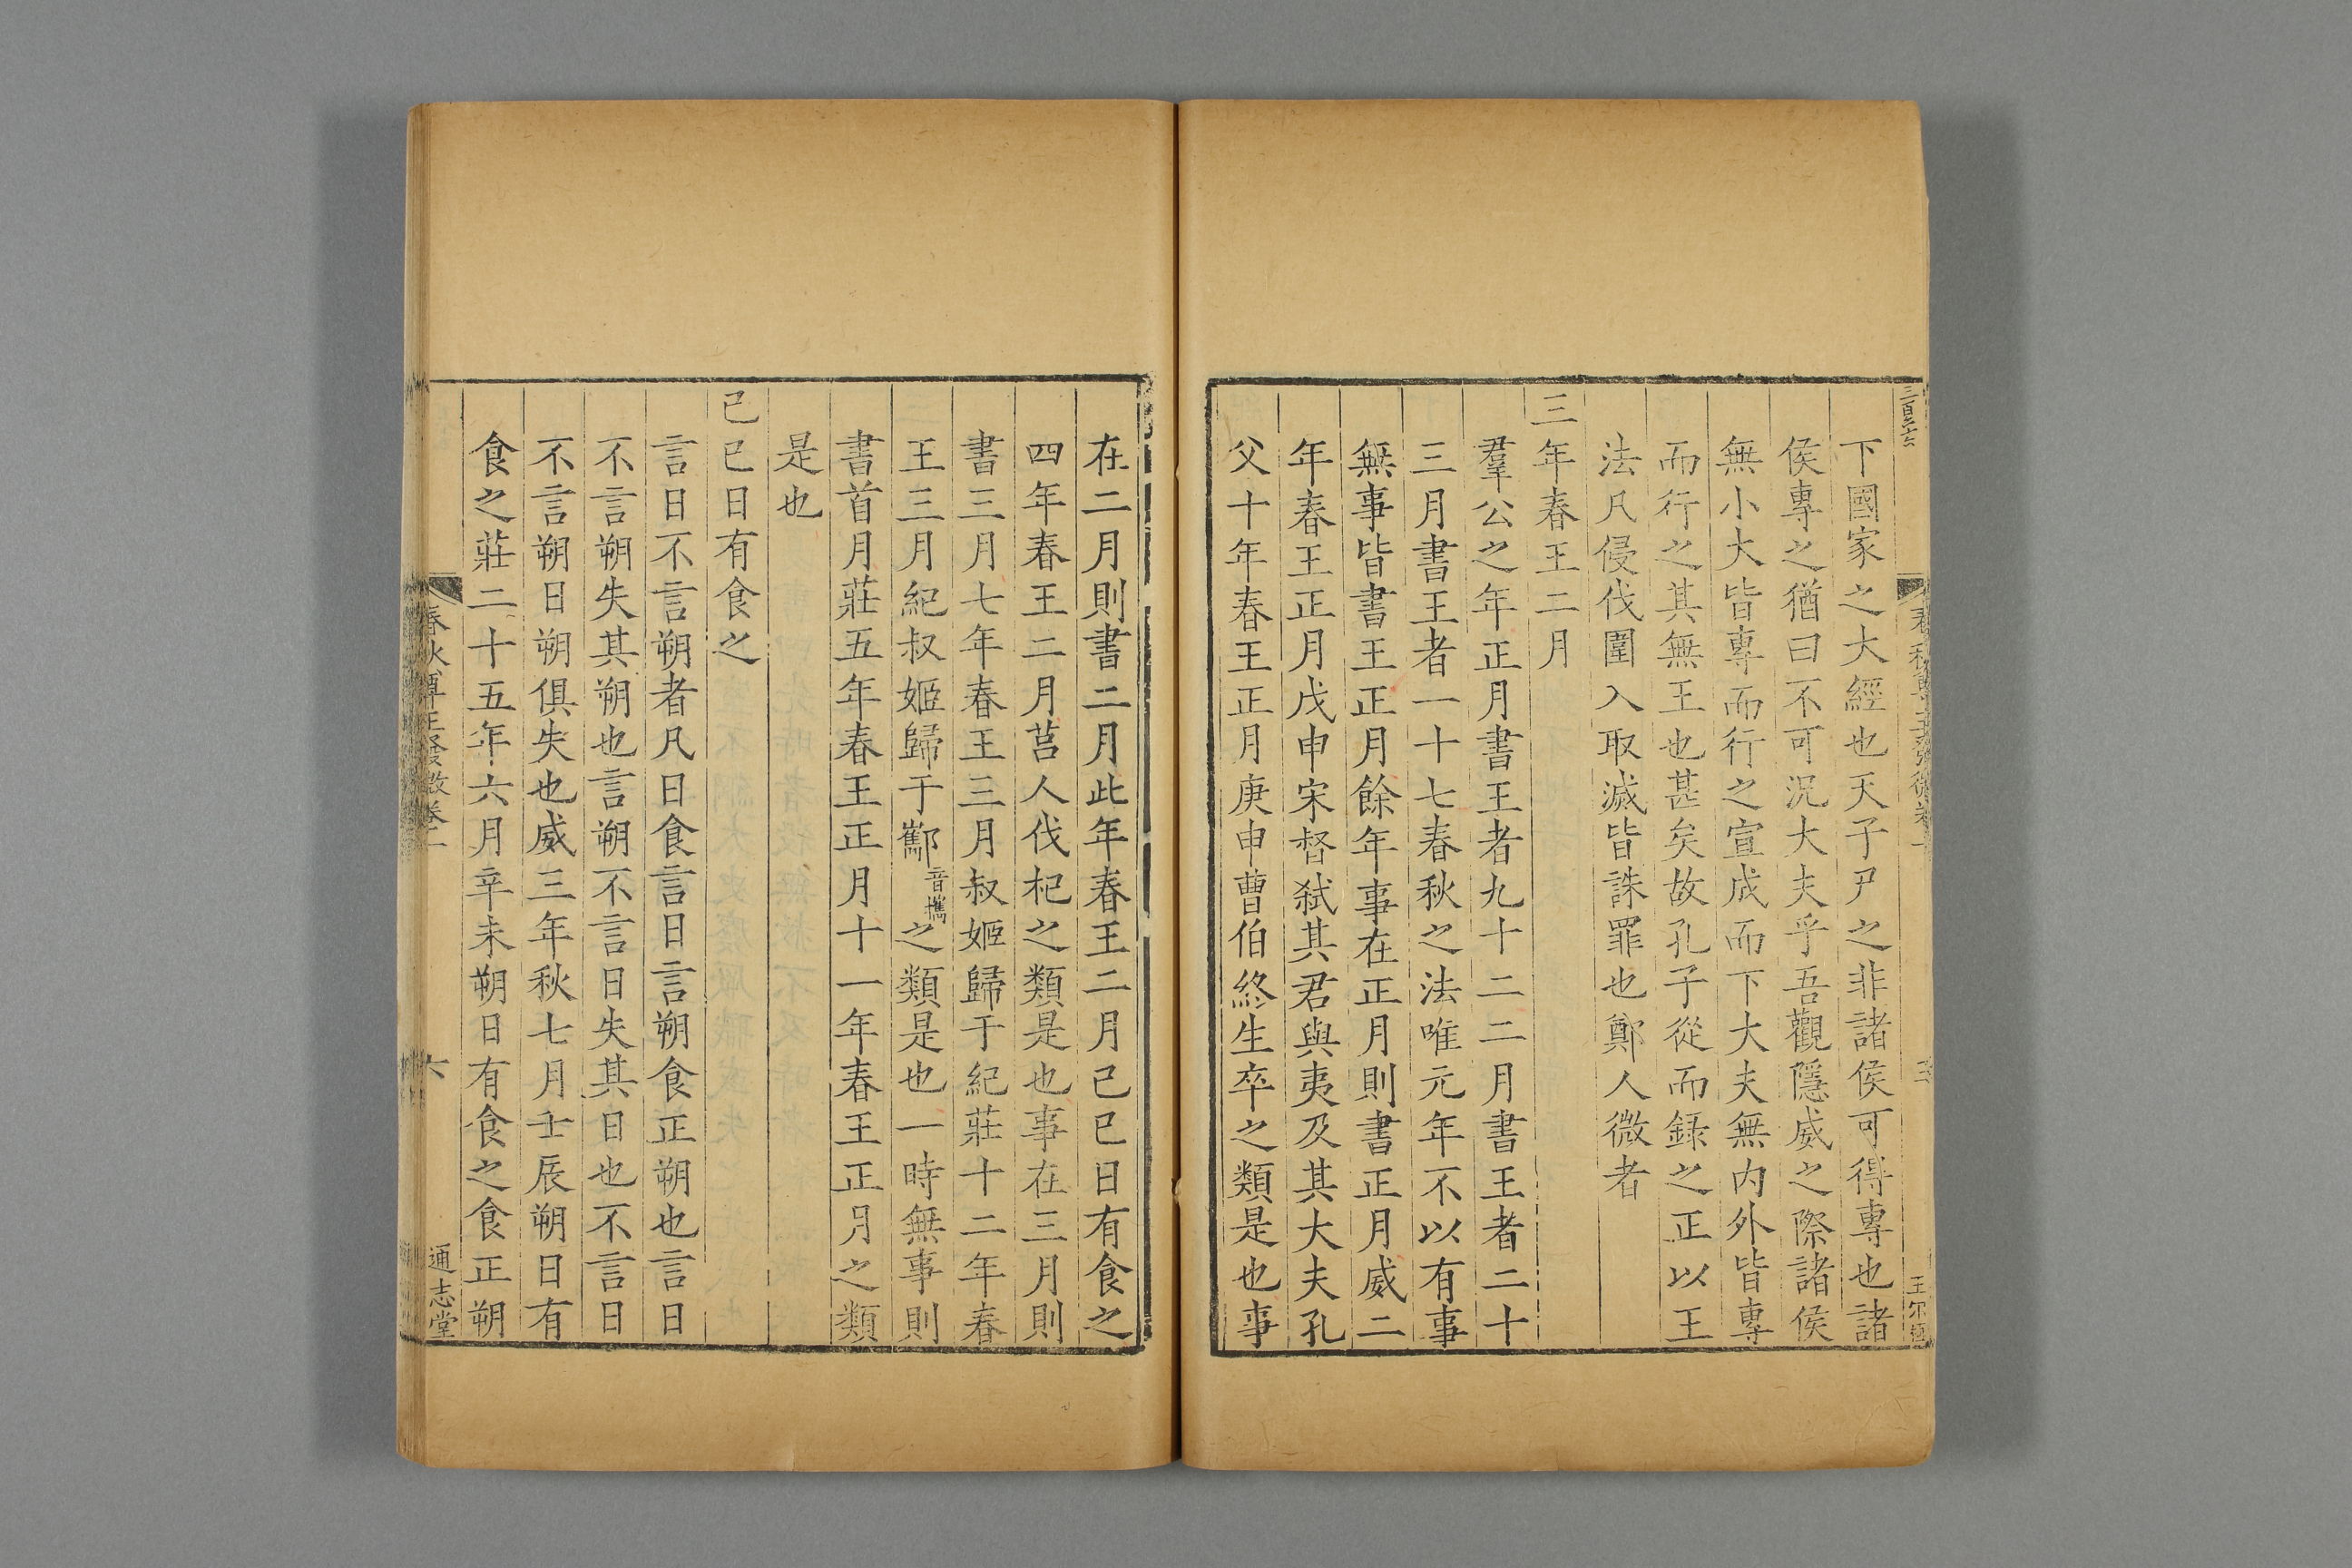 三百六十六
王尔極
下國家之大經也天子尸之非諸侯可得專也諸
侯專之猶曰不可況大夫乎吾觀隱威之際諸侯
無小大皆專而行之宣成而下大夫無內外皆專
而行之其無王也甚矣故孔子從而錄之正以王
法凡侵伐圍入取滅皆誅罪也鄭人微者
三年春王二月
羣公之年正月書王者九十二二月書王者二十
三月書王者一十七春秋之法唯元年不以有事
無事皆書王正月餘年事在正月則書正月威二
年春王正月戊申宋督弒其君與夷及其大夫孔
父十年春王正月庚申曹伯終生卒之類是也事
在二月則書二月此年春王二月己巳日有食之
四年春王二月莒人伐杞之類是也事在三月則
書三月七年春王三月叔姬歸于紀莊十二年春
王三月紀叔姬歸于酅音攜之類是也一時無事則
書首月莊五年春王正月十一年春王正月之類
是也
己巳日有食之
言日不言朔者凡日食言日言朔食正朔也言日
不言朔失其朔也言朔不言日失其日也不言日
不言朔日朔俱失也威三年秋七月壬辰朔日有
食之莊二十五年六月辛未朔日有食之食正朔
春秋尊王發微卷一
六
通志堂